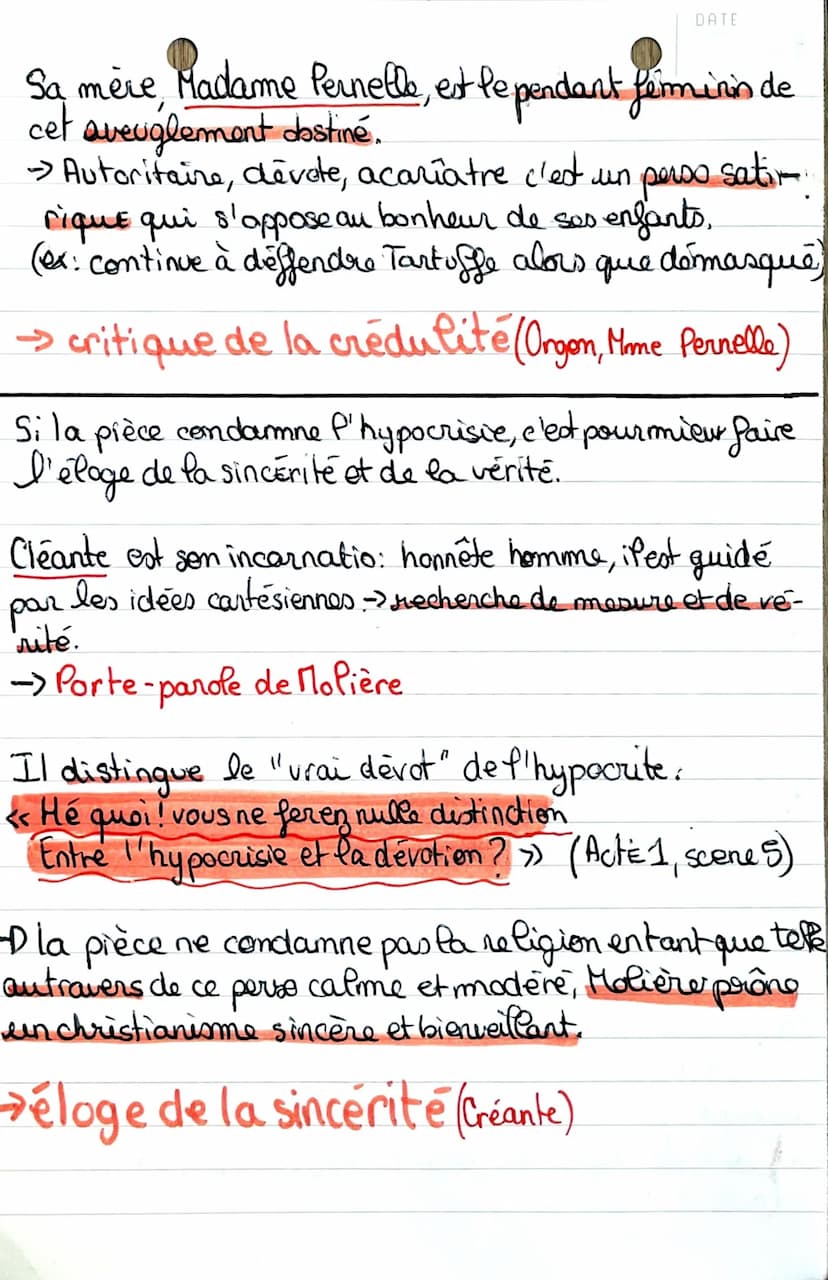 DATE
Sa mère, Madame Pernelle, est le pendant féminin de
cet aveuglement obstiné.
→ Autoritaire, dévote, acariatre c'est un perso sati-
rique qui s'oppose au bonheur de ses enfants.
(ex: continue à déffendre Tartuffe alors que démasqué)
→ critique de la crédulité (Orgon, Mme Pernelle)
Si la pièce condamne l'hypocrisie, c'est pour mieux faire
l'éloge de la sincérité et de la vérité.
Cléante est son incarnatio: honnête homme, il est guidé
par les idées cartésiennes → recherche de mesure et de vé-
rité.
→ Porte-parole de Molière
Il distingue le "vrai dévot" de l'hypocrite:
« Hé quoi! vous ne ferez nulle distinction
Entre l'hypocrisie et la dévotion? » (Acte 1, scene 5)
→ la pièce ne condamne pas la religion en tant que telle
au travers de ce perso calme et modéré, Molière prône
un christianisme sincère et bienveillant.
→ éloge de la sincérité (Créante)